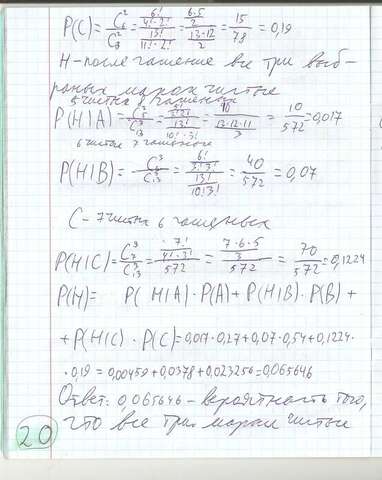 P(C) = C₆²/C₁₃² = (6!/(4!·2!))/(13!/(11!·2!)) = (6·5/2)/(13·12/2) = 15/78 = 0,19
H – после гашение все три выб-
раных марки чистые
5 чистых 8 гашеных
P(H|A) = C₅³/C₁₃³ = (5!/(3!2!))/(13!/(10!·3!)) = 10/(13·12·11/3) = 10/572 = 0,017
6 чистых 7 гашеных
P(H|B) = C₆³/C₁₃³ = (6!/(3!3!))/(13!/(10!3!)) = 40/572 = 0,07
C – 7 чистых 6 гашеных
P(H|C) = C₇³/C₁₃³ = (7!/(4!·3!))/572 = (7·6·5/3)/572 = 70/572 = 0,1224
P(H) = P(H|A)·P(A) + P(H|B)·P(B) +
+ P(H|C)·P(C) = 0,017·0,27 + 0,07·0,54 + 0,1224·
·0,19 = 0,00459 + 0,0378 + 0,023256 = 0,065646
Ответ: 0,065646 – вероятность того,
что все три марки чистые
20